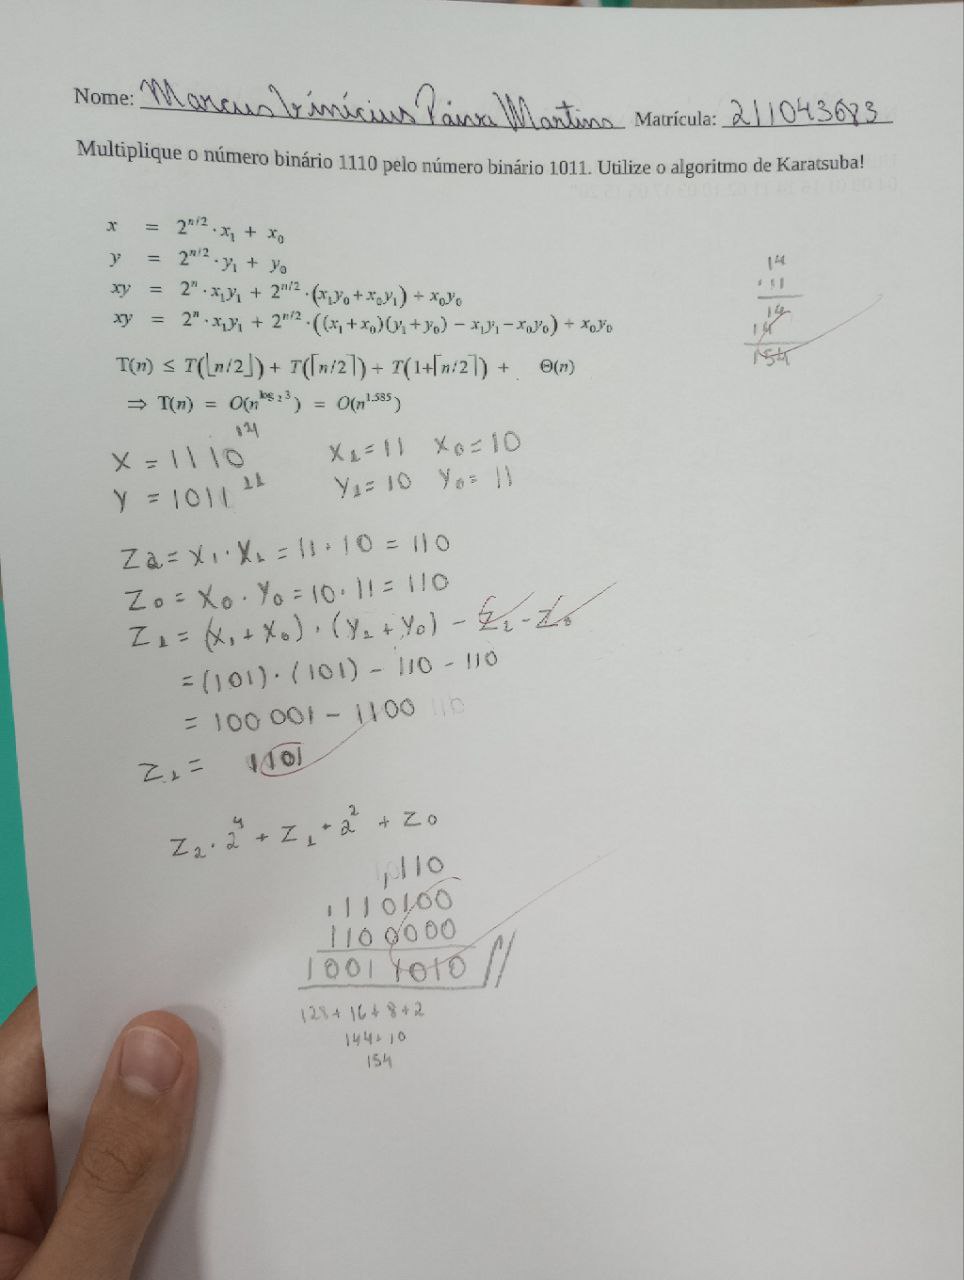 Nome: Marcus Vinícius Paiva Martins Matrícula: 211043683
Multiplique o número binário 1110 pelo número binário 1011. Utilize o algoritmo de Karatsuba!
x = 2^{n/2} · x₁ + x₀
y = 2^{n/2} · y₁ + y₀
xy = 2^n · x₁y₁ + 2^{n/2} · (x₁y₀ + x₀y₁) + x₀y₀
xy = 2^n · x₁y₁ + 2^{n/2} · ((x₁+x₀)(y₁+y₀) − x₁y₁ − x₀y₀) + x₀y₀
T(n) ≤ T(⌊n/2⌋) + T(⌈n/2⌉) + T(1+⌈n/2⌉) + Θ(n)
⇒ T(n) = O(n^{log₂3}) = O(n^{1.585})
14
· 11
14
14
154
X = 1110 14 X₁ = 11 X₀ = 10
Y = 1011 11 Y₁ = 10 Y₀ = 11
Z2 = X₁ · X₁ = 11 · 10 = 110
Z₀ = X₀ · Y₀ = 10 · 11 = 110
Z₁ = (X₁ + X₀) · (Y₁ + Y₀) − Z₂ − Z₀
= (101) · (101) − 110 − 110
= 100 001 − 1100
Z₁ = 1101
Z₂ · 2⁴ + Z₁ · 2² + Z₀
110
1110100
1100000
10011010
128 + 16 + 8 + 2
144 + 10
154